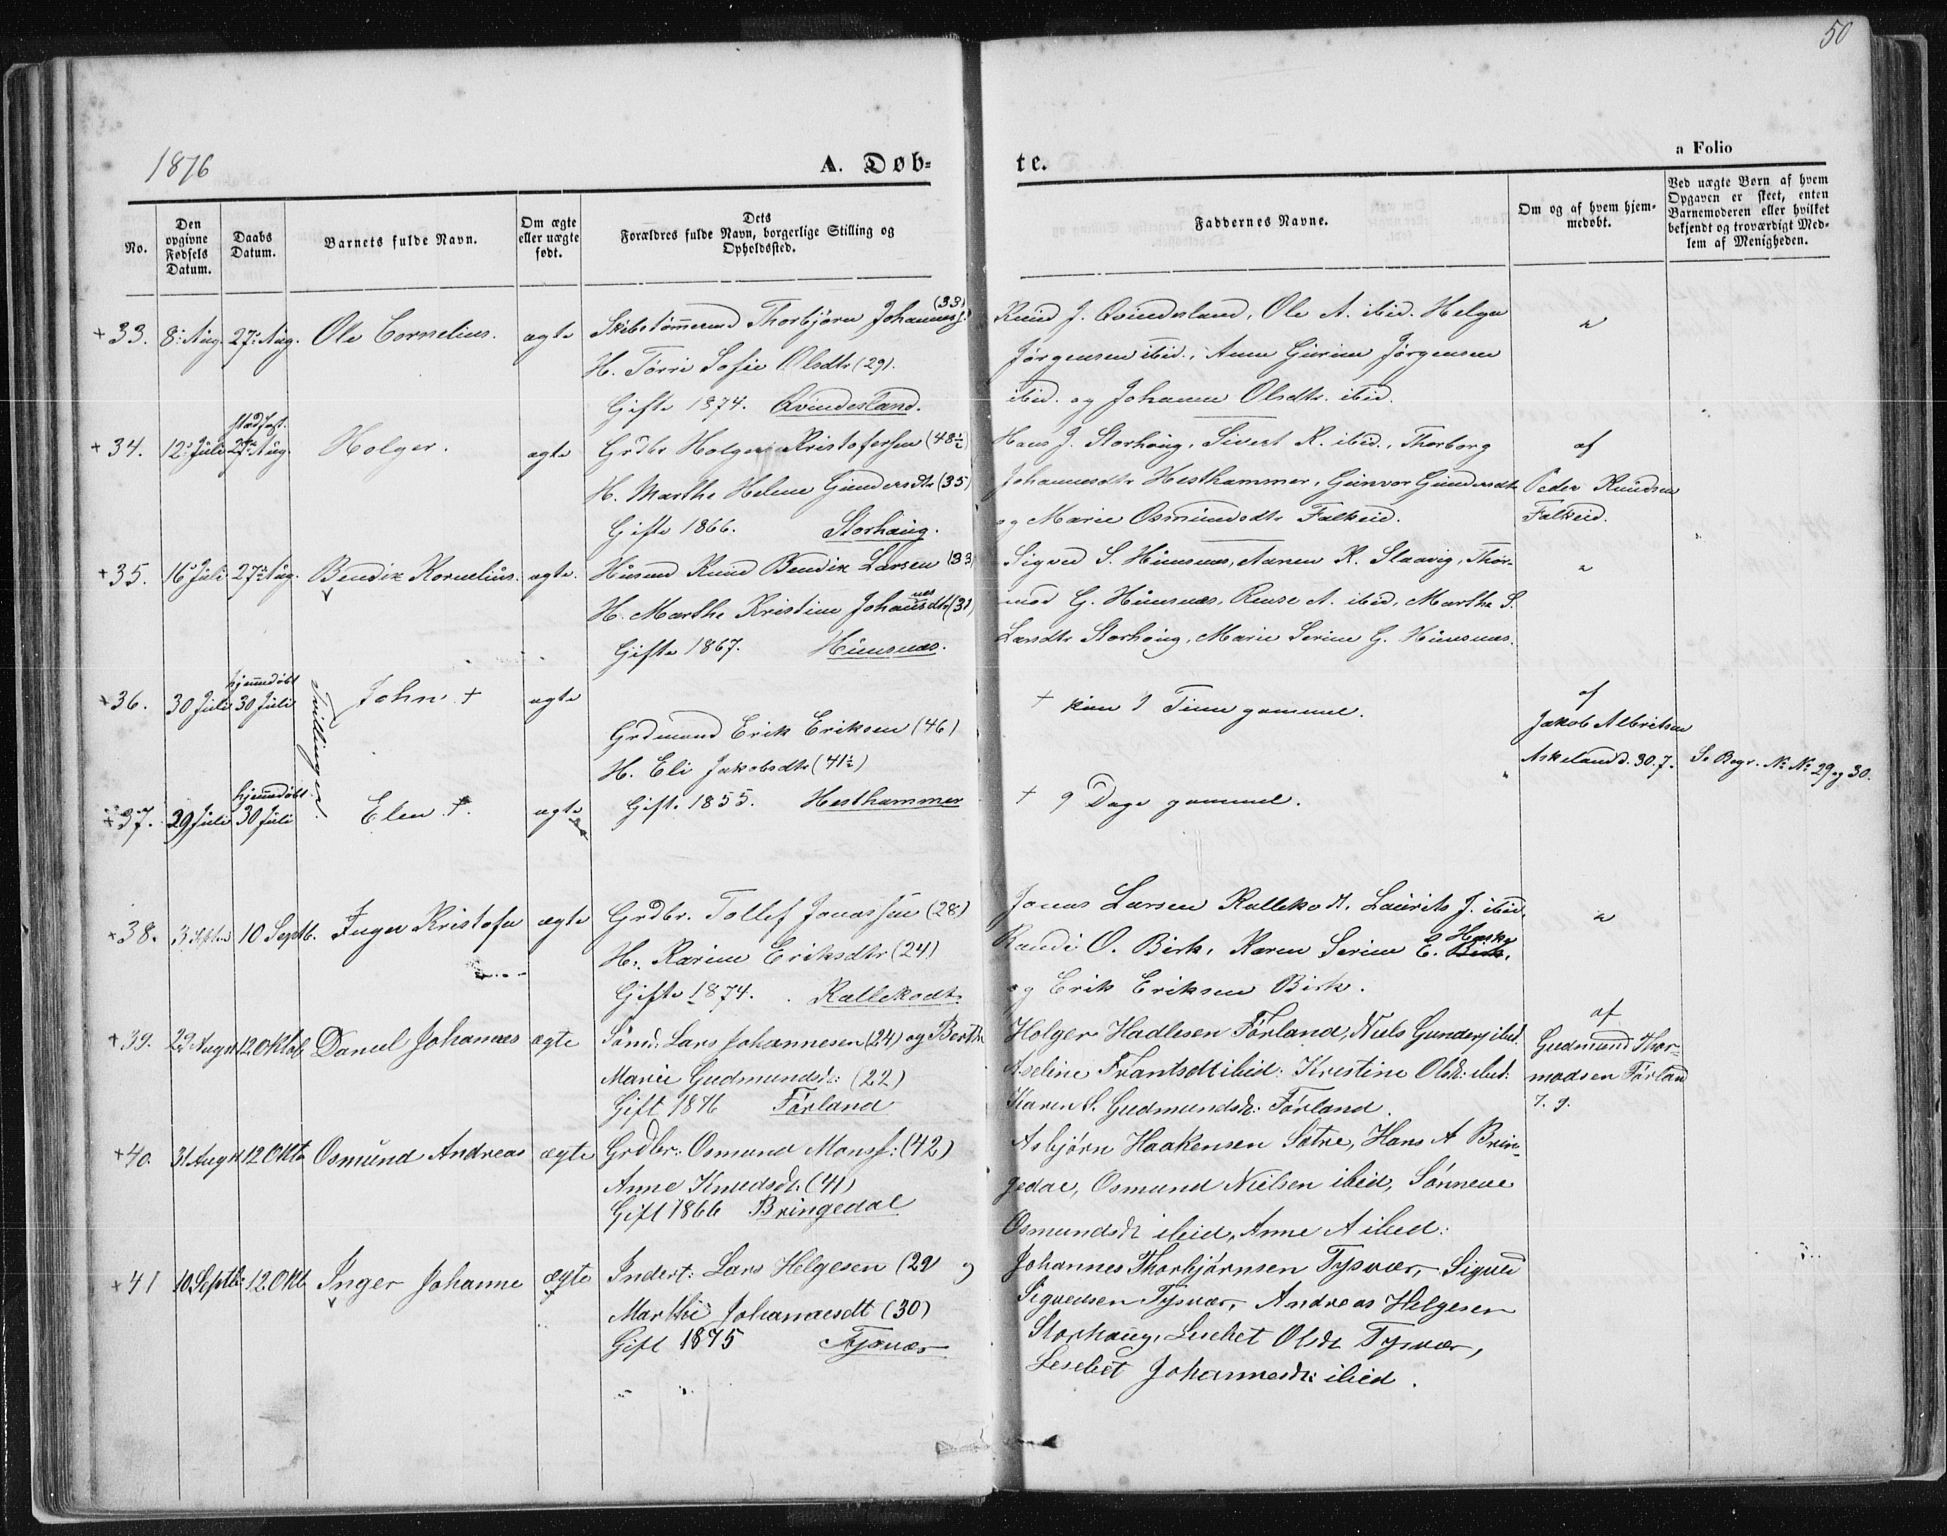 50
1876
A. Døb-
te.
a Folio
No.
Den opgivne Fødsels Datum.
Daabs Datum.
Barnets fulde Navn.
Om ægte eller uægte født.
Dets Forældres fulde Navn, borgerlige Stilling og Opholdssted.
Faddernes Navne.
Om og af hvem hjemmedøbt.
Ved uægte Børn af hvem Opgaven er skeet, enten Barnemoderen eller hvilket bekjendt og troværdigt Medlem af Menigheden.
+33. 8: Aug. 27: Aug. Ole Cornelius. ægte Skibstømmermd Thorbjørn Johannes. (33)
H. Tørri Sofie Olsdtr (29).
Gifte 1874. Qvindesland.
Knud J. Qvindesland, Ole A. ibid. Helga
Jørgensen ibid., Anne Gurine Jørgensen
ibid. og Johanne Olsdtr. ibid.
"
+34. 12: Juli stadfæst. 27de Aug. Holger. ægte Grdbr Holger Kristofersen (48½)
H. Marthe Helene Gundersdtr (35)
Gifte 1866. Storhaug.
Hans J. Storhaug, Sivert K. ibid., Thorborg
Johannesdtr Hesthammer, Gunvor Gundersdtr
og Marie Osmundsdtr Falkeid.
af
Peder Knudsen
Falkeid.
+35. 16: Juli 27: Aug. Bendix Kornelius. ægte. Husmd Knud Bendix Larsen (33)
H. Marthe Kristine Johannesdtr (31)
Gifte 1867. Hunsnæs.
Sigved S. Hunsnæs, Aanen K. Slaavig, Thor-
mod G. Hunsnæs, A. ibid, Marthe S.
Larsdtr Storhaug, Marie Serine G. Hunsnæs.
"
+36. 30 Juli hjemmedøbt 30 Juli John + ægte
Tvillinger.
Grdmand Erik Eriksen (46)
H. Eli Jakobsdtr (41½)
Gift. 1855. Hesthammer
+ kun 1 Time gammel.
af
Jakob Albretsen
Askeland d. 30. 7.
Se Begr. No No 29 og 30.
+37. 29 Juli hjemmedøbt 30 Juli Elen +. ægte
+ 9 Dage gammel.
"
+38. 3 Septbr 10 Septb. Inger Kristofa ægte Grdbr. Tollef Jonassen (28)
H. Karine Eriksdtr (24)
Gifte 1874. Kallekodt.
Jonas Larsen Kallekodt, Laurits J. ibid,
Randi O. Birk, Karen Serine E. Birk,
og Erik Eriksen Birk.
"
+39. 29 Augst 12 Oktob. Daniel Johannes ægte Sømd: Lars Johannesen (24) og Berthe
Marie Gudmundsdt: (22)
Gift 1876 Førland
Holger Hadlesen Førland, Niels Gunders. ibid.
Aseline Frantsdt ibid: Kristine Olsdt: ibid:
Karen S. Gudmundsdt: Førland.
af
Gudmund Thor-
modsen Førland
7. 9.
+40. 31 Augst 12 Oktb Osmund Andreas ægte Grdbr: Osmund Monss: (42)
Anne Knudsdt: (41)
Gift 1866 Bringedal
Asbjørn Haakensen Sætre, Hans A Brin-
gedal, Osmund Nielsen ibid, Sønneve
Osmundsdt ibid, Anne A ibid:
+41 10 Septb: 12 Oktb Inger Johanne ægte Inderst: Lars Helgesen (29) og
Marthe Johannesdt (30)
Gift 1875 Tysvær
Johannes Thorbjørnsen Tysvær, Sigved
Sigvedsen Tysvær, Andreas Helgesen
Storhaug, Lisebet Olsdt Tysvær,
Lesebet Johannesdt: ibid.